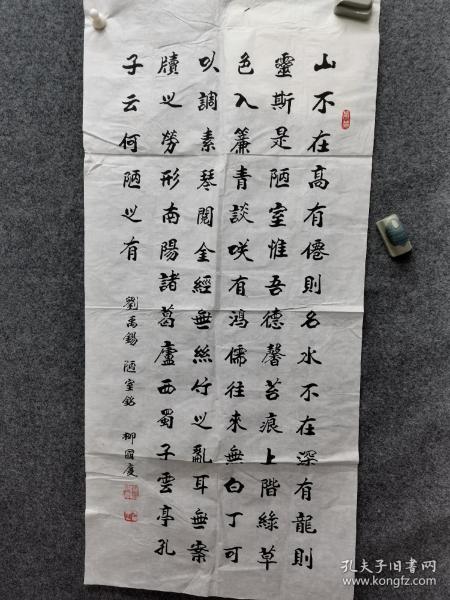 山不在高有僊則名水不在深有龍則
靈斯是陋室惟吾德馨苔痕上階綠草
色入簾青談咲有鴻儒往來無白丁可
以調素琴閱金經無絲竹之亂耳無案
牘之勞形南陽諸葛廬西蜀子雲亭孔
子云何陋之有
劉禹錫 陋室銘 柳國慶
孔夫子旧书网
www.kongfz.com